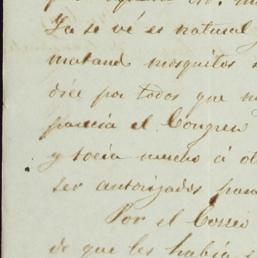 Ya se vé es natural
matand mosquitos
dice por todos que
parecia el Congreu
y tocia mucho á
ser autorizados para
Por el Correo
de que les habia